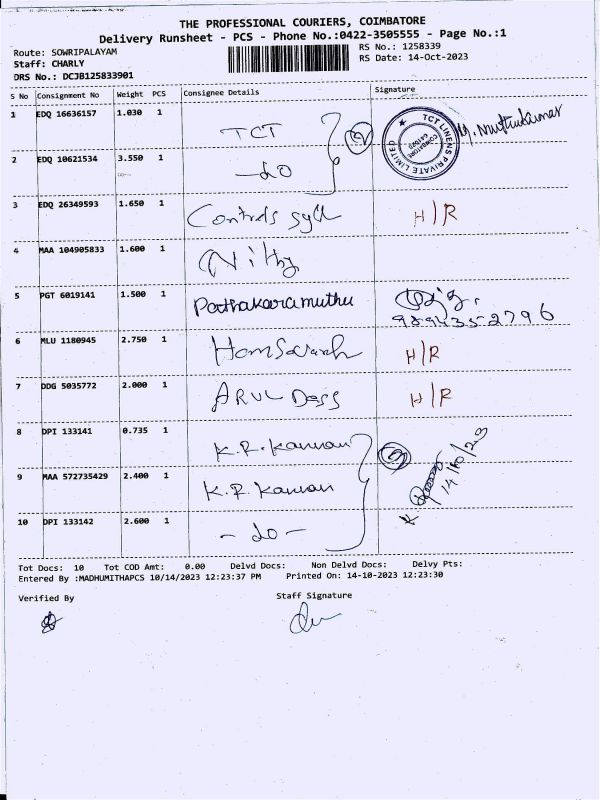 THE PROFESSIONAL COURIERS, COIMBATORE
Delivery Runsheet - PCS - Phone No.:0422-3505555 - Page No.:1
Route: SOWRIPALAYAM
RS No.: 1258339
Staff: CHARLY
RS Date: 14-Oct-2023
DRS No.: DCJB125833901
S No Consignment No Weight PCS Consignee Details Signature
1 EDQ 16636157 1.030 1 TCT
TCT LINENS PRIVATE LIMITED
COIMBATORE
2 EDQ 10621534 3.550 1 -do
3 EDQ 26349593 1.650 1 Controls H/R
4 MAA 104905833 1.600 1
5 PGT 6019141 1.500 1 9894352796
6 MLU 1180945 2.750 1 H/R
7 DDG 5035772 2.000 1 ARUL Dass H/R
8 DPI 133141 0.735 1 K.R. Kannan
14/10/23
9 MAA 572735429 2.400 1 K.R. Kannan
10 DPI 133142 2.600 1 - do -
Tot Docs: 10 Tot COD Amt: 0.00 Delvd Docs: Non Delvd Docs: Delvy Pts:
Entered By :MADHUMITHAPCS 10/14/2023 12:23:37 PM Printed On: 14-10-2023 12:23:30
Verified By Staff Signature